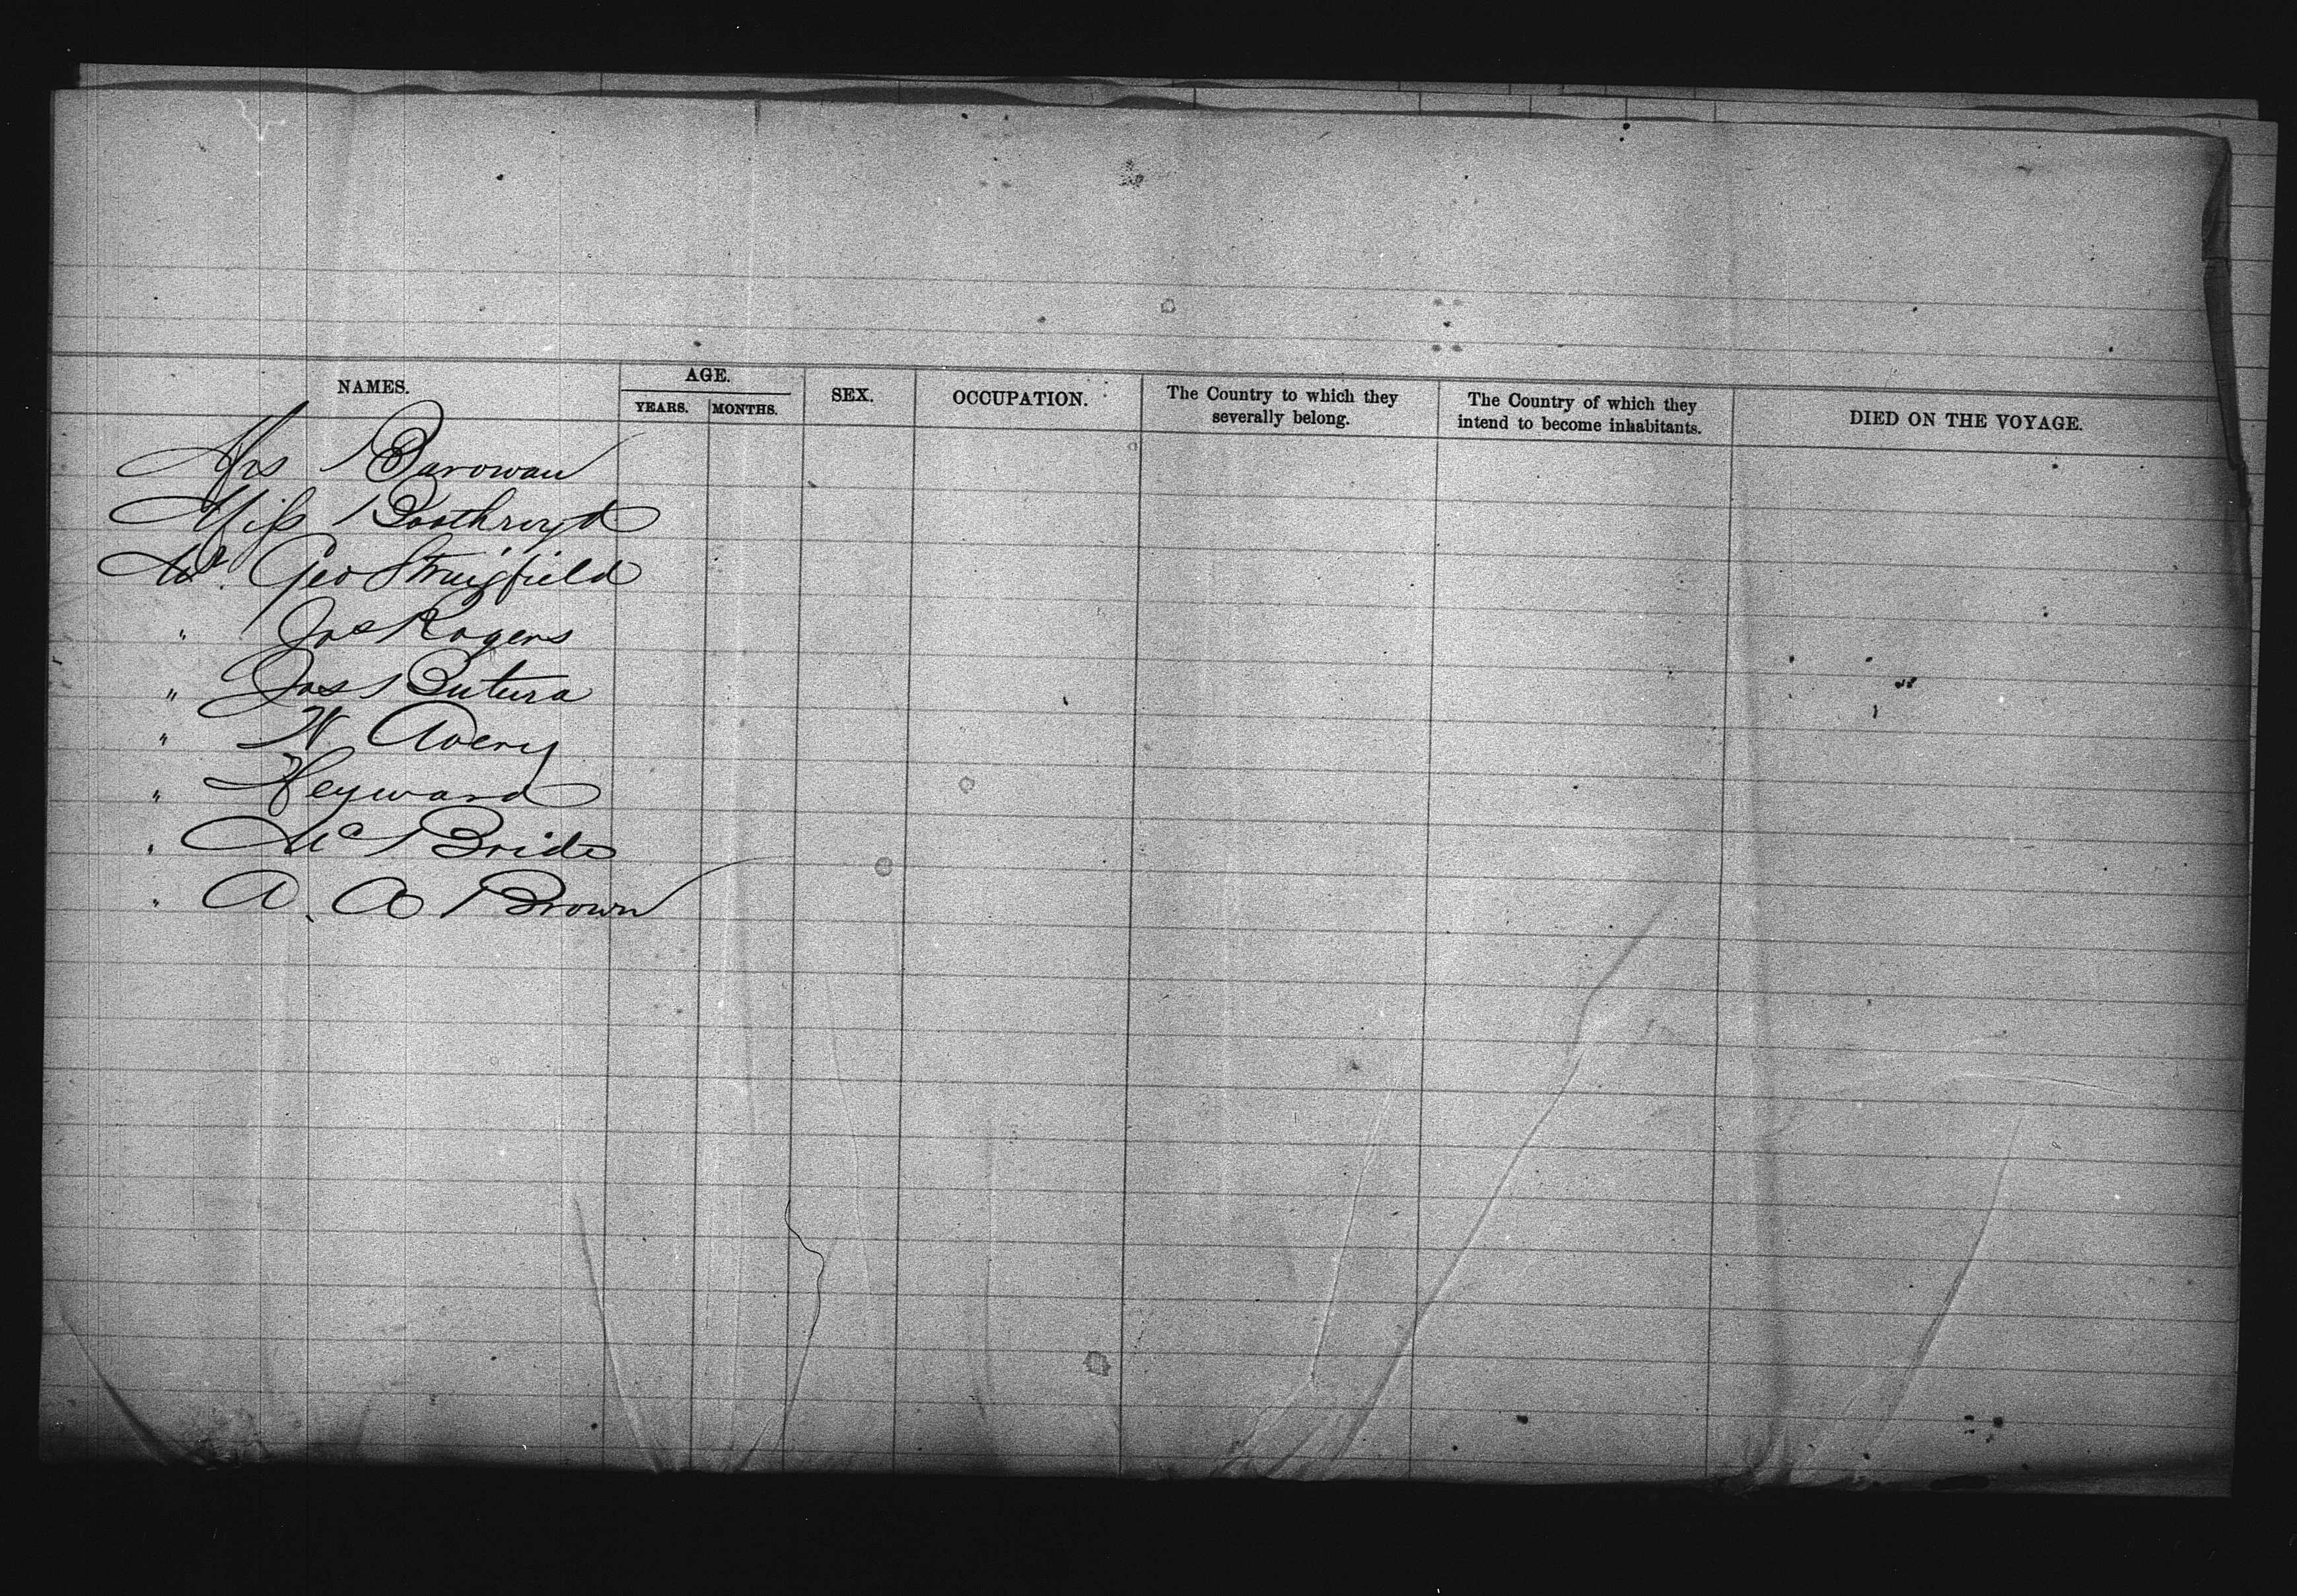 NAMES. AGE. SEX. OCCUPATION. The Country to which they severally belong. The Country of which they intend to become inhabitants. DIED ON THE VOYAGE.
YEARS. MONTHS.
Mrs Barowan
Miss Boothroyd
Mr. Geo
" Jas Rogers
" Jas Butura
" W Avery
" Heyward
" McBride
" A. A Brown